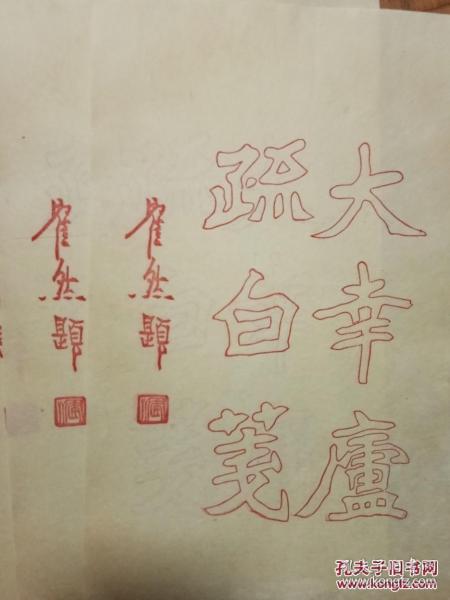 大幸廬
疏白箋
然題
然題
孔夫子旧书网
www.kongfz.com